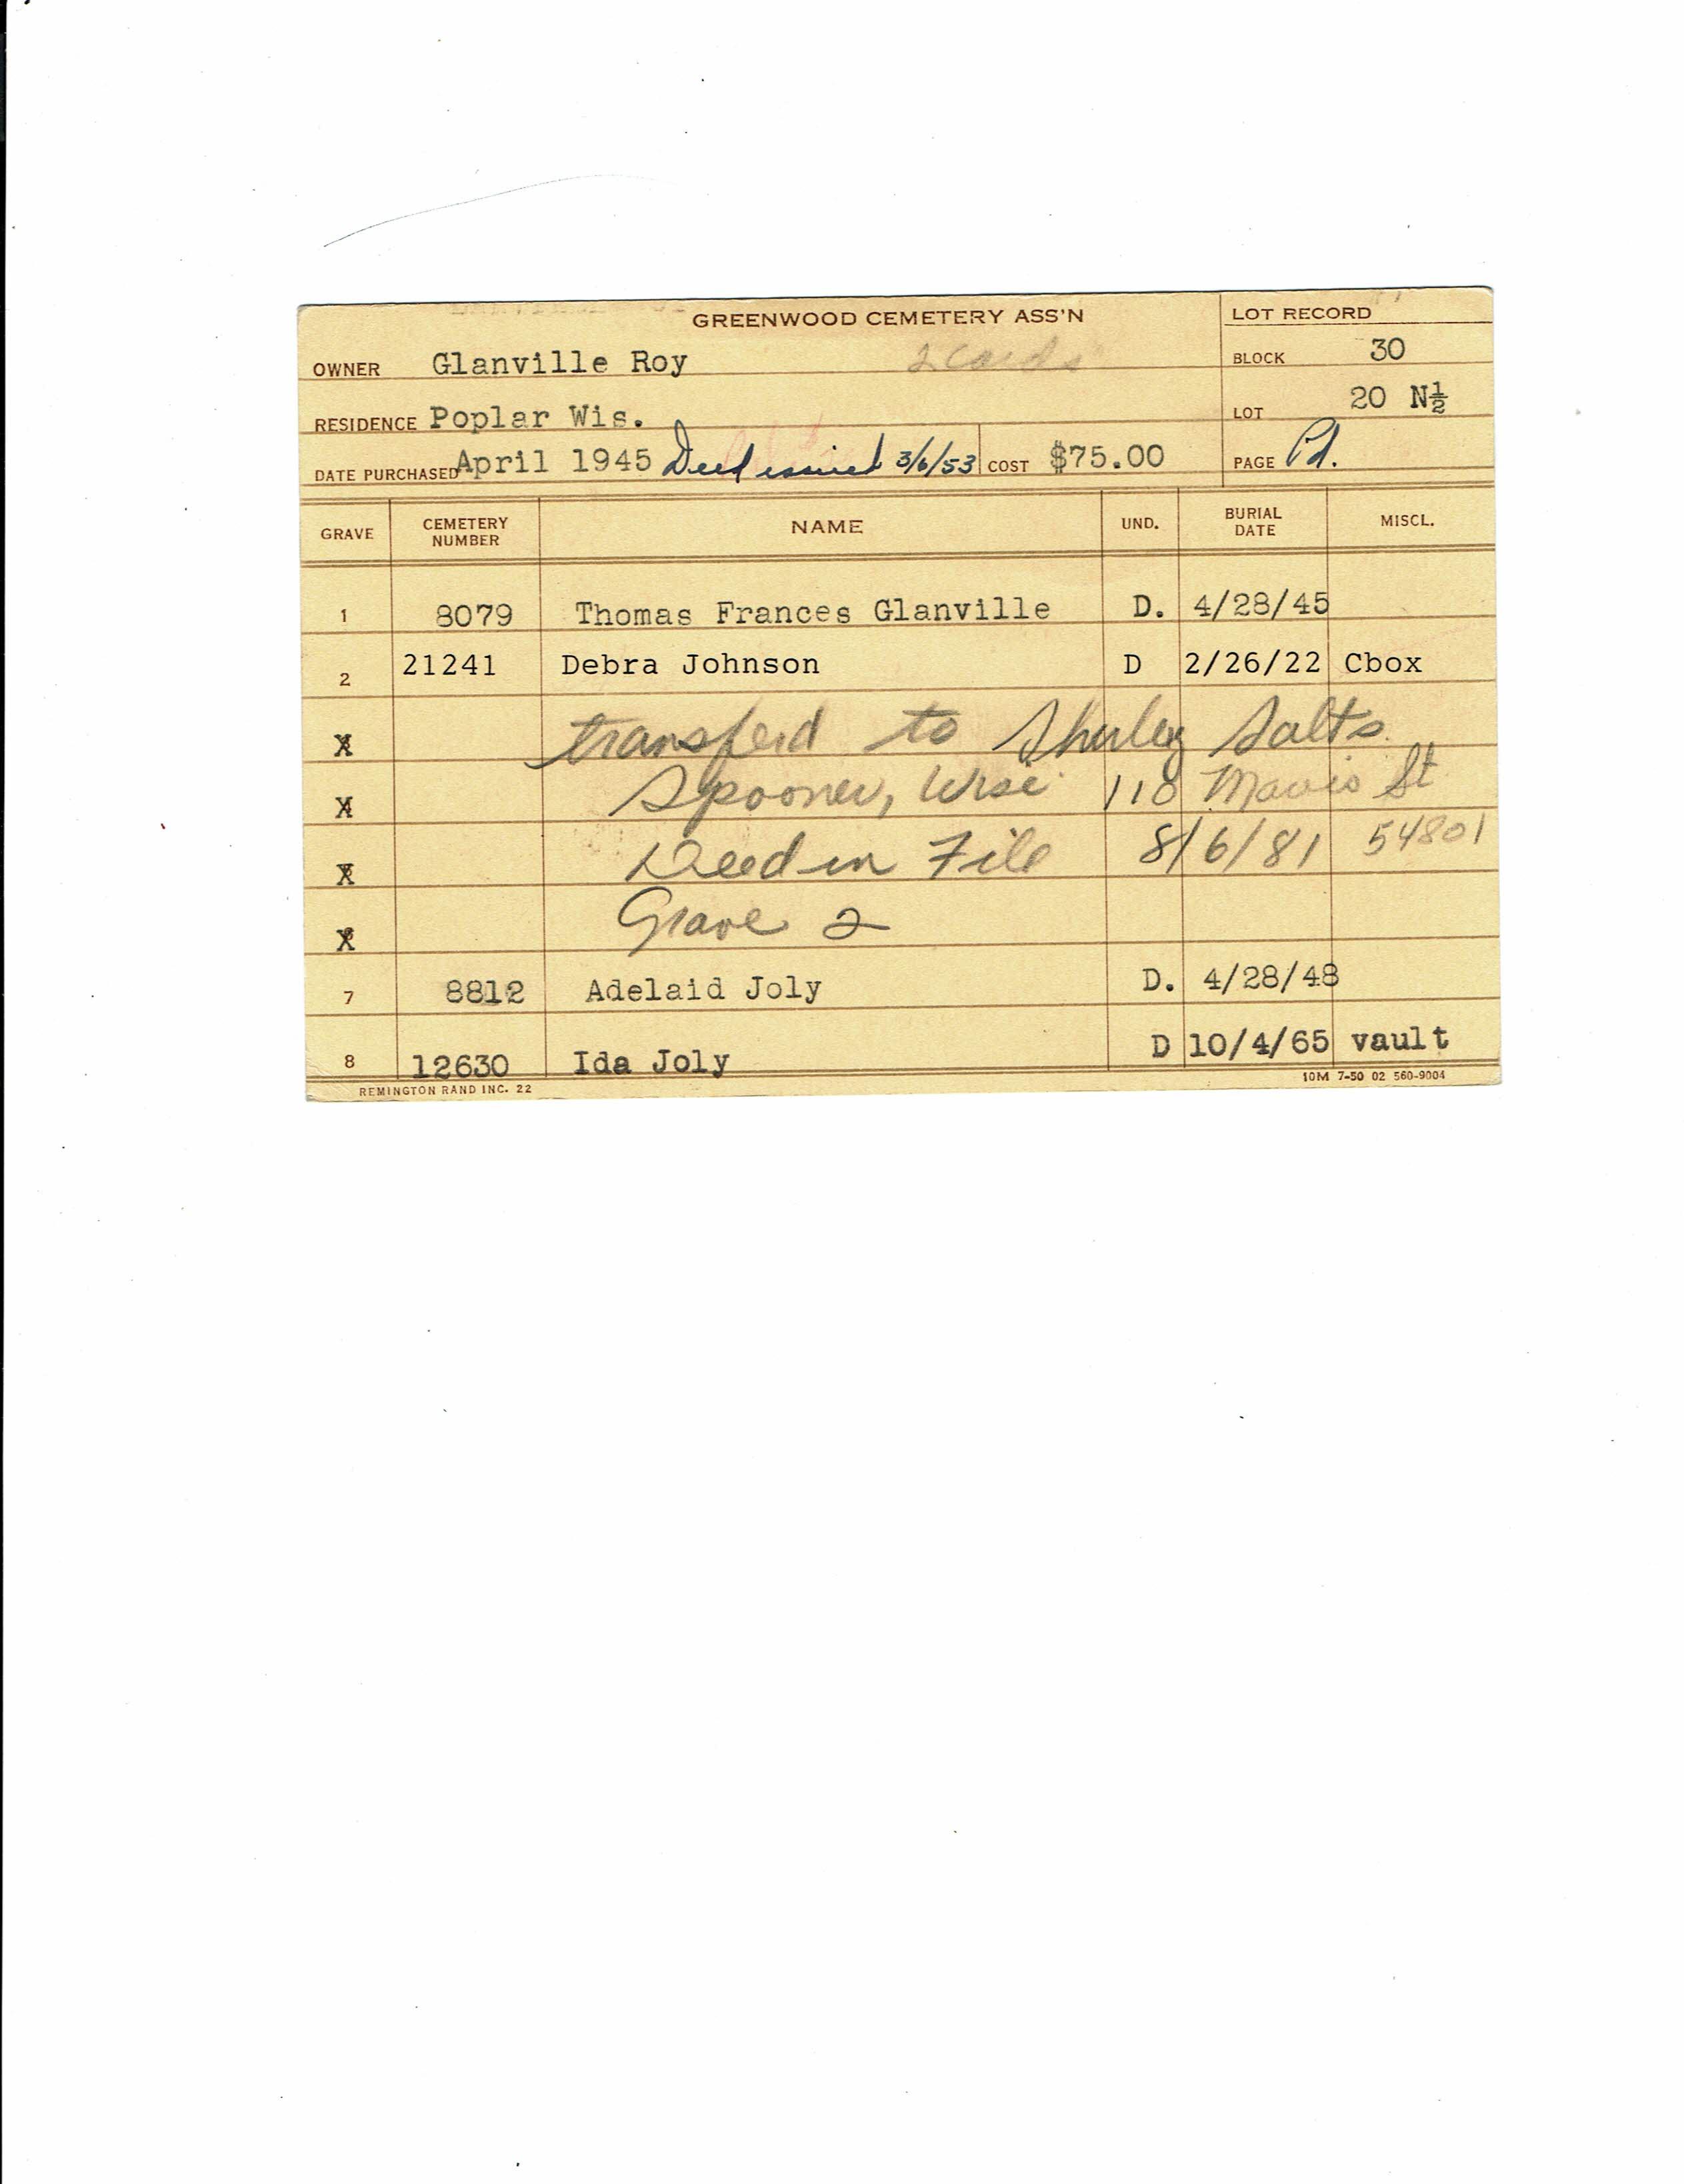 GREENWOOD CEMETERY ASS'N
LOT RECORD
OWNER Glanville Roy 2 Cards
BLOCK 30
RESIDENCE Poplar Wis.
LOT 20 N½
DATE PURCHASED April 1945 Deed issued 3/6/53 COST $75.00
PAGE Pd.
GRAVE CEMETERY NUMBER NAME UND. BURIAL DATE MISCL.
1 8079 Thomas Frances Glanville D. 4/28/45
2 21241 Debra Johnson D 2/26/22 Cbox
X transferd to Shirley Salts
X Spooner, Wisc 110 St
X Deed in File 8/6/81 54801
X Grave 2
7 8812 Adelaid Joly D. 4/28/48
8 12630 Ida Joly D 10/4/65 vault
REMINGTON RAND INC. 22
10M 7-50 02 560-9004